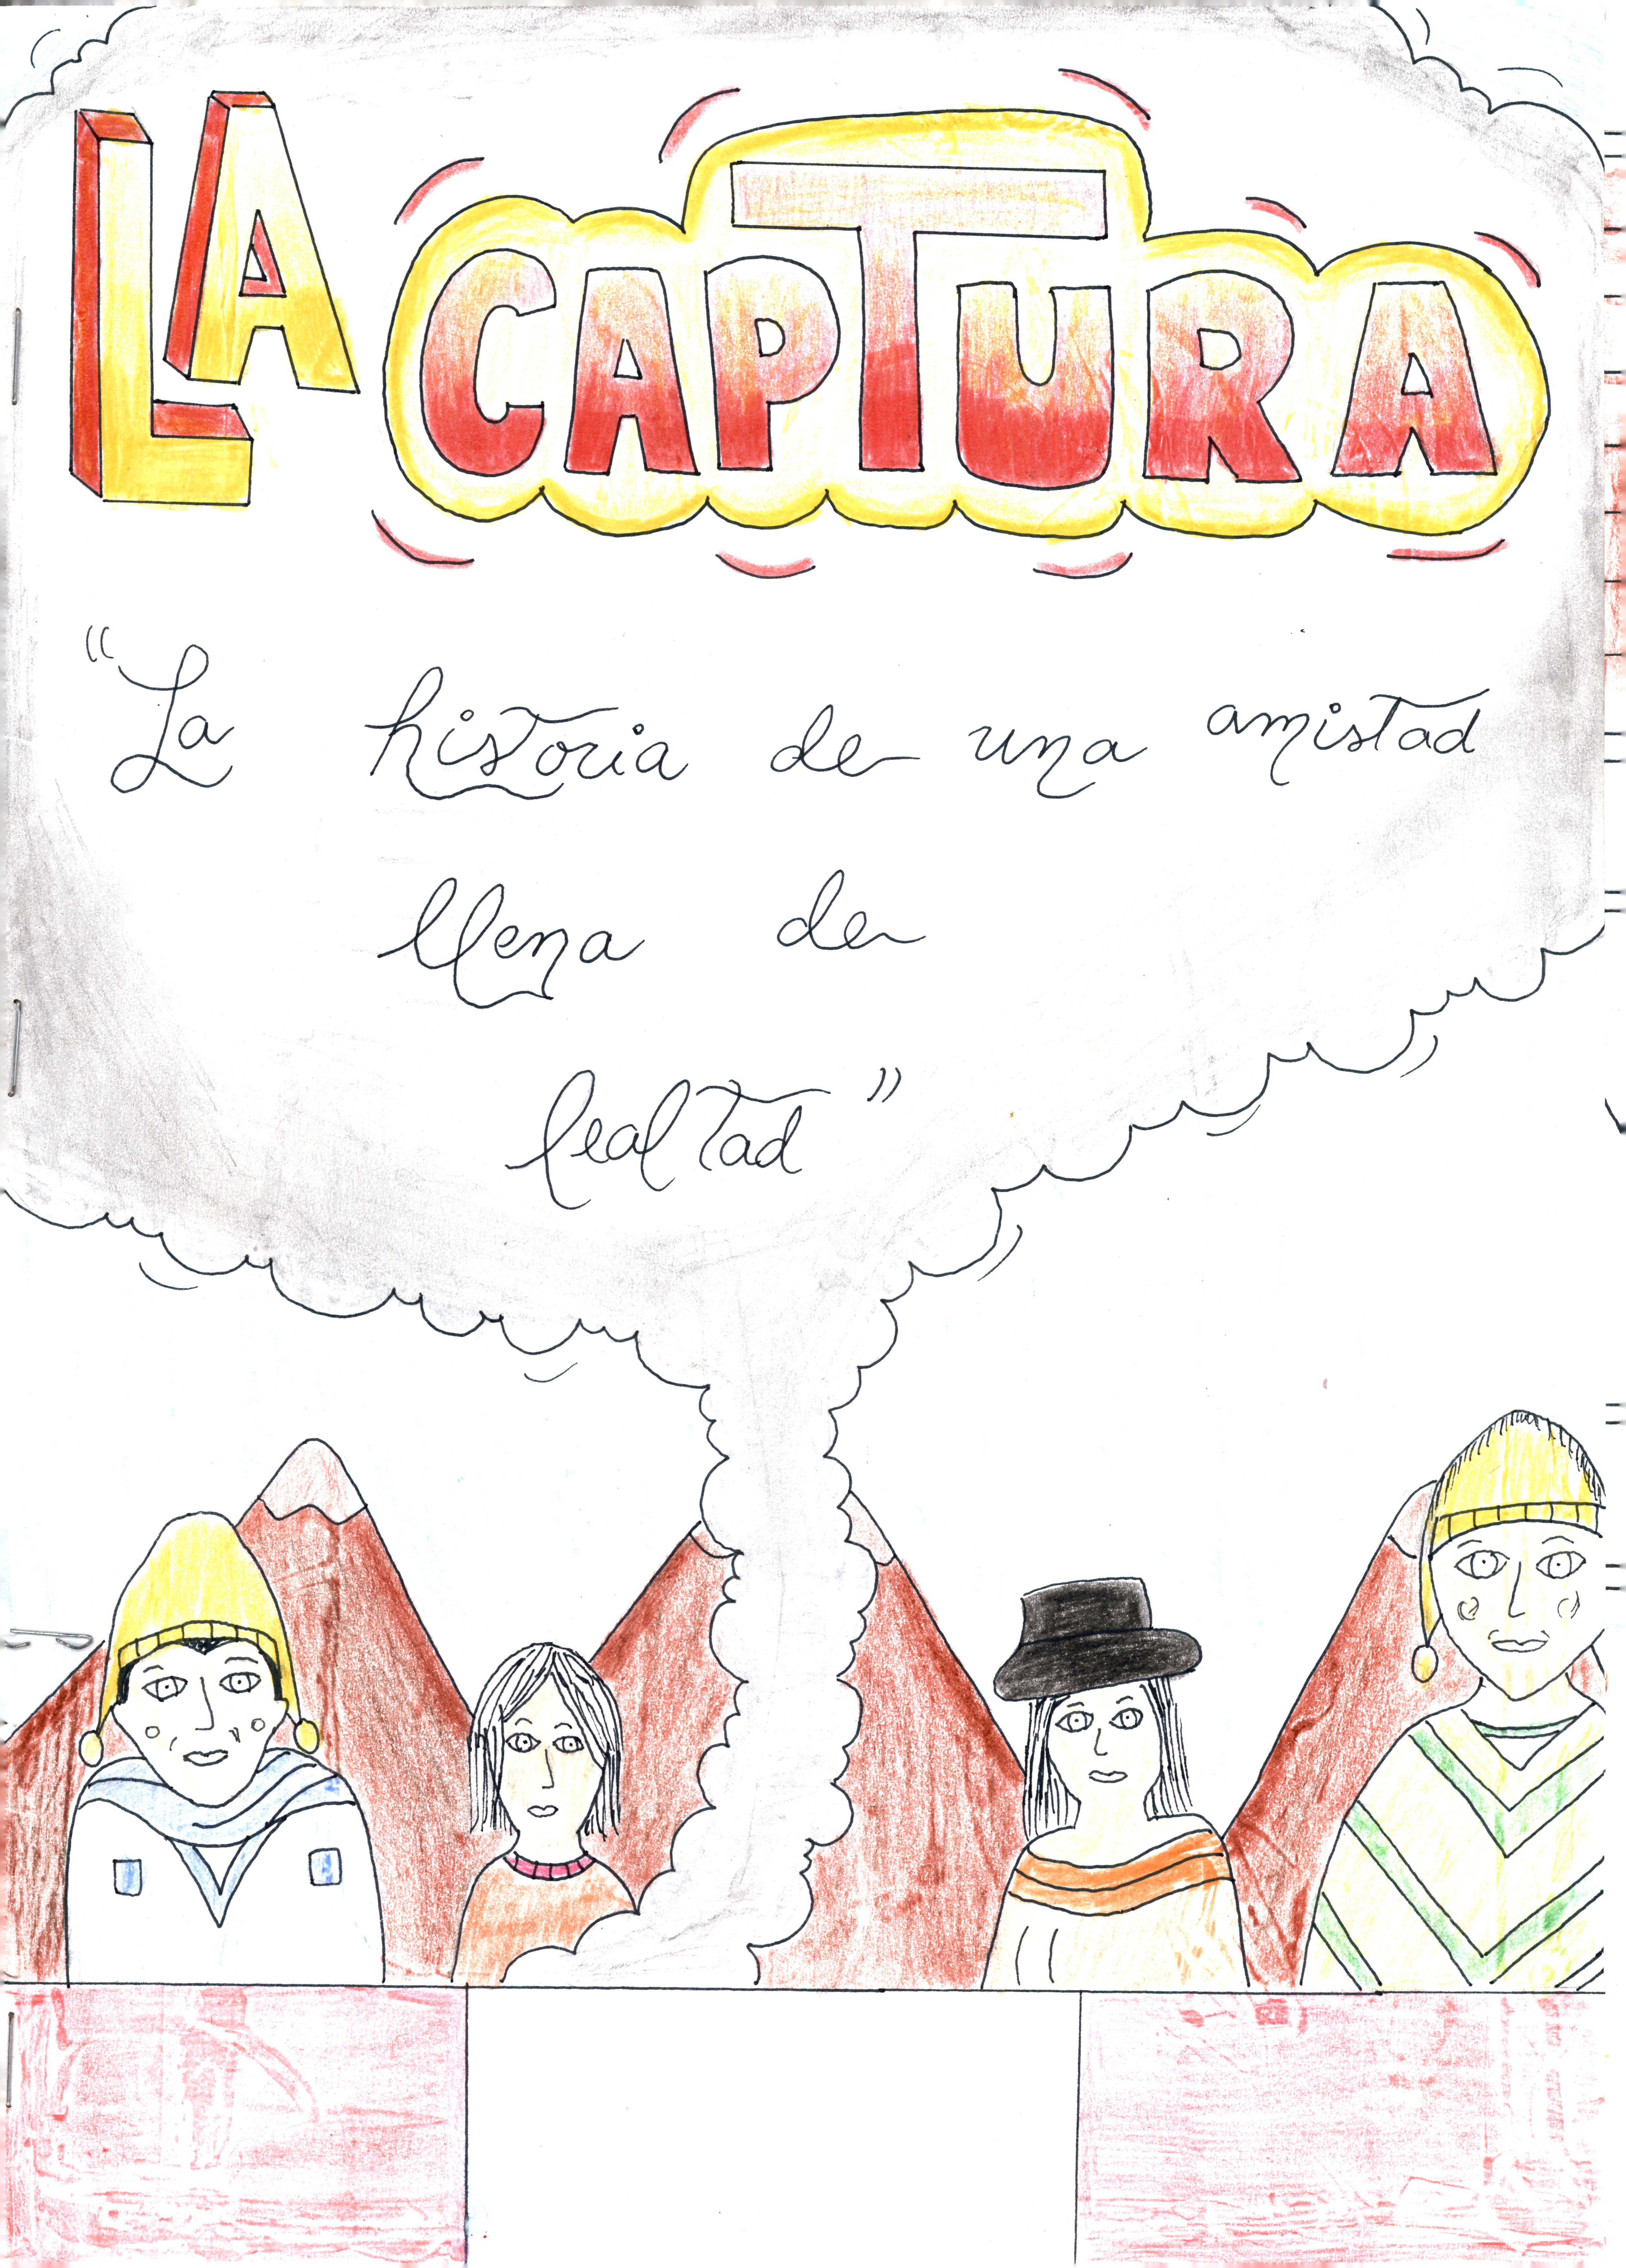 LA CAPTURA
"La historia de una amistad
llena de
lealtad"